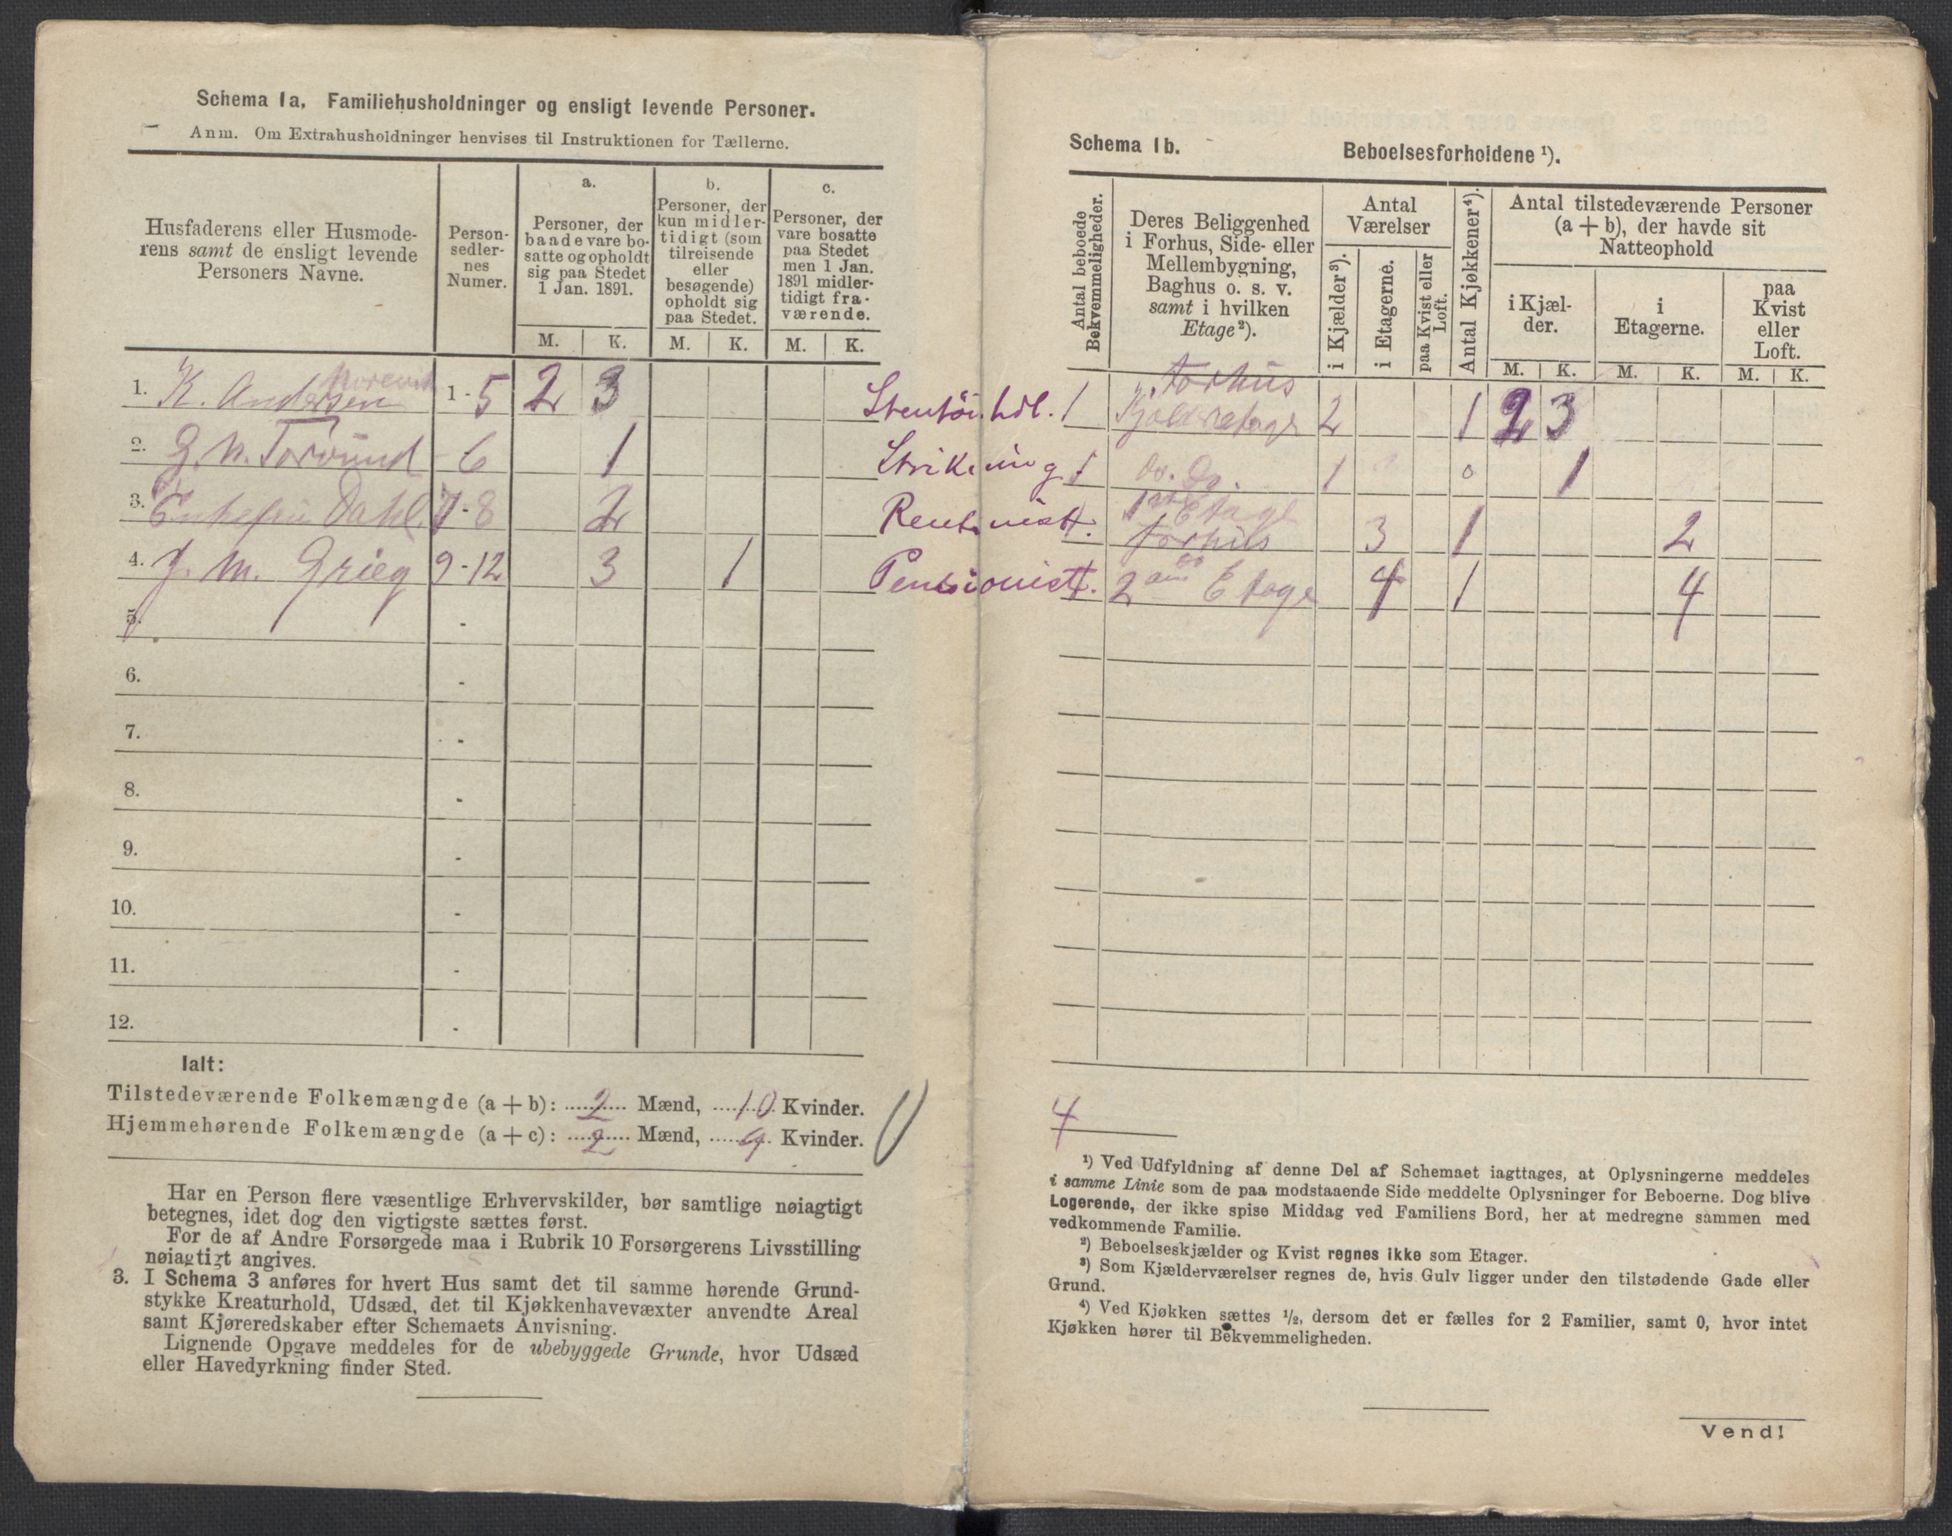 Schema 1a. Familiehusholdninger og ensligt levende Personer.
Anm. Om Extrahusholdninger henvises til Instruktionen for Tællerne.
Husfaderens eller Husmode-
rens samt de ensligt levende
Personers Navne.
Person-
sedler-
nes
Numer.
a.
Personer, der
baade vare bo-
satte og opholdt
sig paa Stedet
1 Jan. 1891.
b.
Personer, der
kun midler-
tidigt (som
tilreisende
eller
besøgende)
opholdt sig
paa Stedet.
c.
Personer, der
vare bosatte
paa Stedet
men 1 Jan.
1891 midler-
tidigt fra-
værende.
M. K. M. K. M. K.
1. K. Andersen 1 - 5 2 3
2. G. N. Torvund - 6 1
3. Dahl. 7 - 8 2
4. J. M. Grieg 9 - 12 3 1
5. -
6. -
7. -
8. -
9. -
10. -
11. -
12. -
Ialt:
Tilstedeværende Folkemængde (a + b): 2 Mænd, 10 Kvinder.
Hjemmehørende Folkemængde (a + c): 2 Mænd, 9 Kvinder.
Har en Person flere væsentlige Erhvervskilder, bør samtlige nøiagtigt
betegnes, idet dog den vigtigste sættes først.
For de af Andre Forsørgede maa i Rubrik 10 Forsørgerens Livsstilling
nøiagtigt angives.
3. I Schema 3 anføres for hvert Hus samt det til samme hørende Grund-
stykke Kreaturhold, Udsæd, det til Kjøkkenhavevæxter anvendte Areal
samt Kjøreredskaber efter Schemaets Anvisning.
Lignende Opgave meddeles for de ubebyggede Grunde, hvor Udsæd
eller Havedyrkning finder Sted.
Schema 1b. Beboelsesforholdene ¹).
Antal beboede
Bekvemmeligheder.
Deres Beliggenhed
i Forhus, Side- eller
Mellembygning,
Baghus o. s. v.
samt i hvilken
Etage ²).
Antal
Værelser
i Kjælder ³).
i Etagerne.
paa Kvist eller
Loft.
Antal Kjøkkener ⁴).
Antal tilstedeværende Personer
(a + b), der havde sit
Natteophold
i Kjæl-
der.
i
Etagerne.
paa
Kvist
eller
Loft.
M. K. M. K. M. K.
Forhus
Stentøi. hdl. 1 Kjælderetage 2 1 2 3
Strikning 1 Do. Do. 1 0 1
1ste Etage
Rentenist. 1 Forhus 3 1 2
Pensionist. 1 2den Etage 4 1 4
4
¹) Ved Udfyldning af denne Del af Schemaet iagttages, at Oplysningerne meddeles
i samme Linie som de paa modstaaende Side meddelte Oplysninger for Beboerne. Dog blive
Logerende, der ikke spise Middag ved Familiens Bord, her at medregne sammen med
vedkommende Familie.
²) Beboelseskjælder og Kvist regnes ikke som Etager.
³) Som Kjælderværelser regnes de, hvis Gulv ligger under den tilstødende Gade eller
Grund.
⁴) Ved Kjøkken sættes ½, dersom det er fælles for 2 Familier, samt 0, hvor intet
Kjøkken hører til Bekvemmeligheden.
Vend!